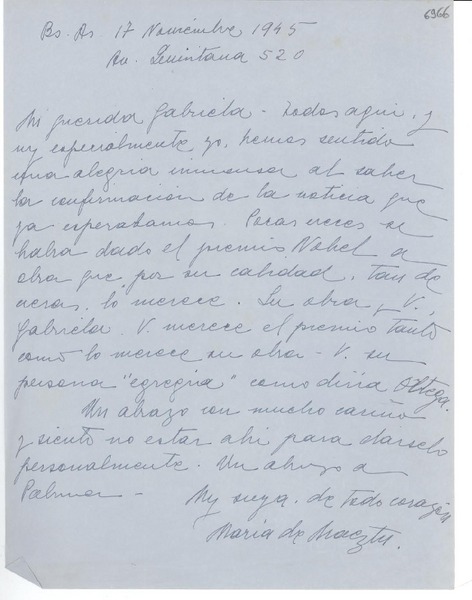 6966
Bs. As 17 Noviembre 1945
Av. Quintana 520
Mi querida Gabriela - Todos aqui, y
muy especialmente yo, hemos sentido
una alegria inmensa al saber
la confirmación de la noticia que
ya esperabamos. Pocas veces se
habra dado el premio Nobel a
obra que por su calidad, tan de
veras, lo merece. Su obra, y V.,
Gabriela. V. merece el premio tanto
como lo merece su obra - V. su
persona "egregia" como diria Ortega.
Un abrazo con mucho cariño
y siento no estar ahi para darselo
personalmente. Un abrazo a
Palma -
Muy suya. de todo corazón
Maria de Maeztu.